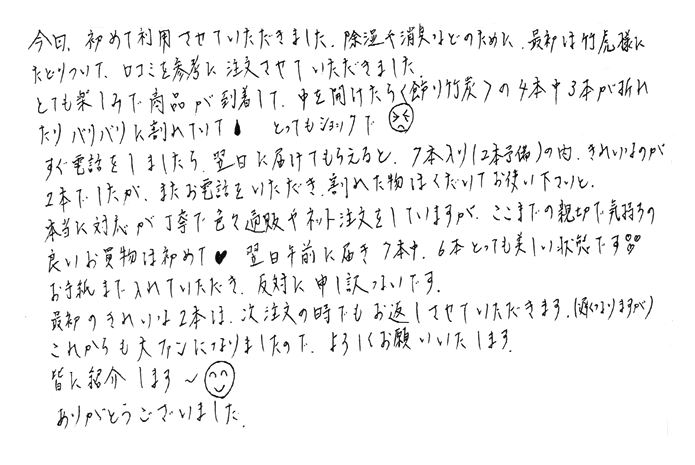 今日、初めて利用させていただきました。除湿や消臭などのために、最初は竹虎様に
たどりついて、口コミを参考に注文させていただきました。
とても楽しみで商品が到着して、中を開けたら〈飾り竹炭〉の4本中3本が折れ
たりバリバリに割れていて　とってもショックで
すぐ電話をしましたら、翌日に届けてもらえると、7本入り(2本予備)の内、きれいなのが
2本でしたが、またお電話をいただき、割れた物はくだいてお使い下さいと、
本当に対応が丁寧で色々通販やネット注文をしていますが、ここまでの親切で気持ちの
良いお買物は初めて♥ 翌日午前に届き7本中、6本とっても美しい状態です
お手紙まで入れていただき、反対に申し訳ないです。
最初のきれいな2本は、次注文の時でもお返しさせていただきます。(遅くなりますが)
これからも大ファンになりましたので、よろしくお願いいたします。
皆に紹介します〜
ありがとうございました。